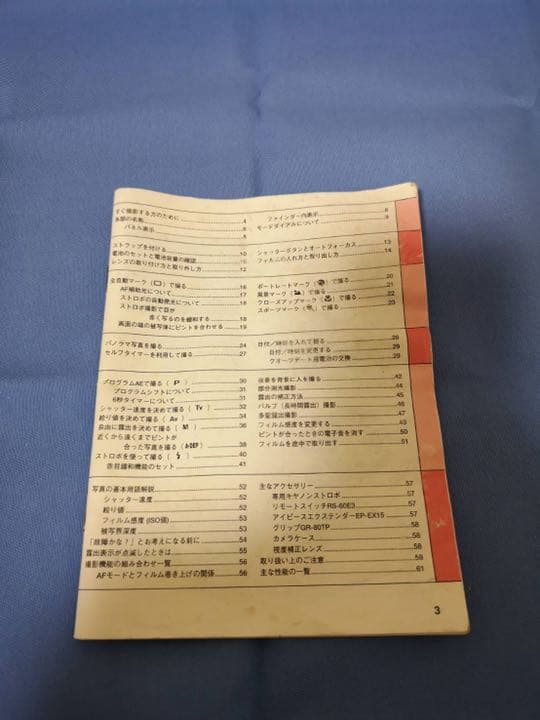 すぐ撮影する方のために 4
各部の名称 6
パネル表示 8
ファインダー内表示 8
モードダイアルについて 9
ストラップを付ける
電池のセットと電池容量の確認 10
レンズの取り付け方と取り外し方 12
シャッターボタンとオートフォーカス 13
フィルムの入れ方と取り出し方 14
全自動マーク(□)で撮る 16
AF補助光について 17
ストロボの自動発光について 17
ストロボ撮影で目が
赤く写るのを緩和する 18
画面の端の被写体にピントを合わせる 19
ポートレートマーク()で撮る 20
風景マーク()で撮る 21
クローズアップマーク()で撮る 22
スポーツマーク()で撮る 23
パノラマ写真を撮る 24
セルフタイマーを利用して撮る 27
日付/時刻を入れて撮る 28
日付/時刻を変更する 29
クオーツデート用電池の交換 29
プログラムAEで撮る(P) 30
プログラムシフトについて 31
6秒タイマーについて 31
シャッター速度を決めて撮る(Tv) 32
絞り値を決めて撮る(Av) 34
自由に露出を決めて撮る(M) 36
近くから遠くまでピントが
合った写真を撮る(A-DEP) 38
ストロボを使って撮る() 40
赤目緩和機能のセット 41
夜景を背景に人を撮る 42
部分測光撮影 44
露出の補正方法 45
バルブ(長時間露出)撮影 46
多重露出撮影 47
フィルム感度を変更する 49
ピントが合ったときの電子音を消す 50
フィルムを途中で取り出す 51
写真の基本用語解説 52
シャッター速度 52
絞り値 52
フィルム感度(ISO値) 53
被写界深度 53
「故障かな?」とお考えになる前に 54
露出表示が点滅したときは 55
撮影機能の組み合わせ一覧 56
AFモードとフィルム巻き上げの関係 56
主なアクセサリー 57
専用キヤノンストロボ 57
リモートスイッチRS-60E3 57
アイピースエクステンダーEP-EX15 57
グリップGR-80TP 58
カメラケース 58
視度補正レンズ 58
取り扱い上のご注意 59
主な性能の一覧 61
3